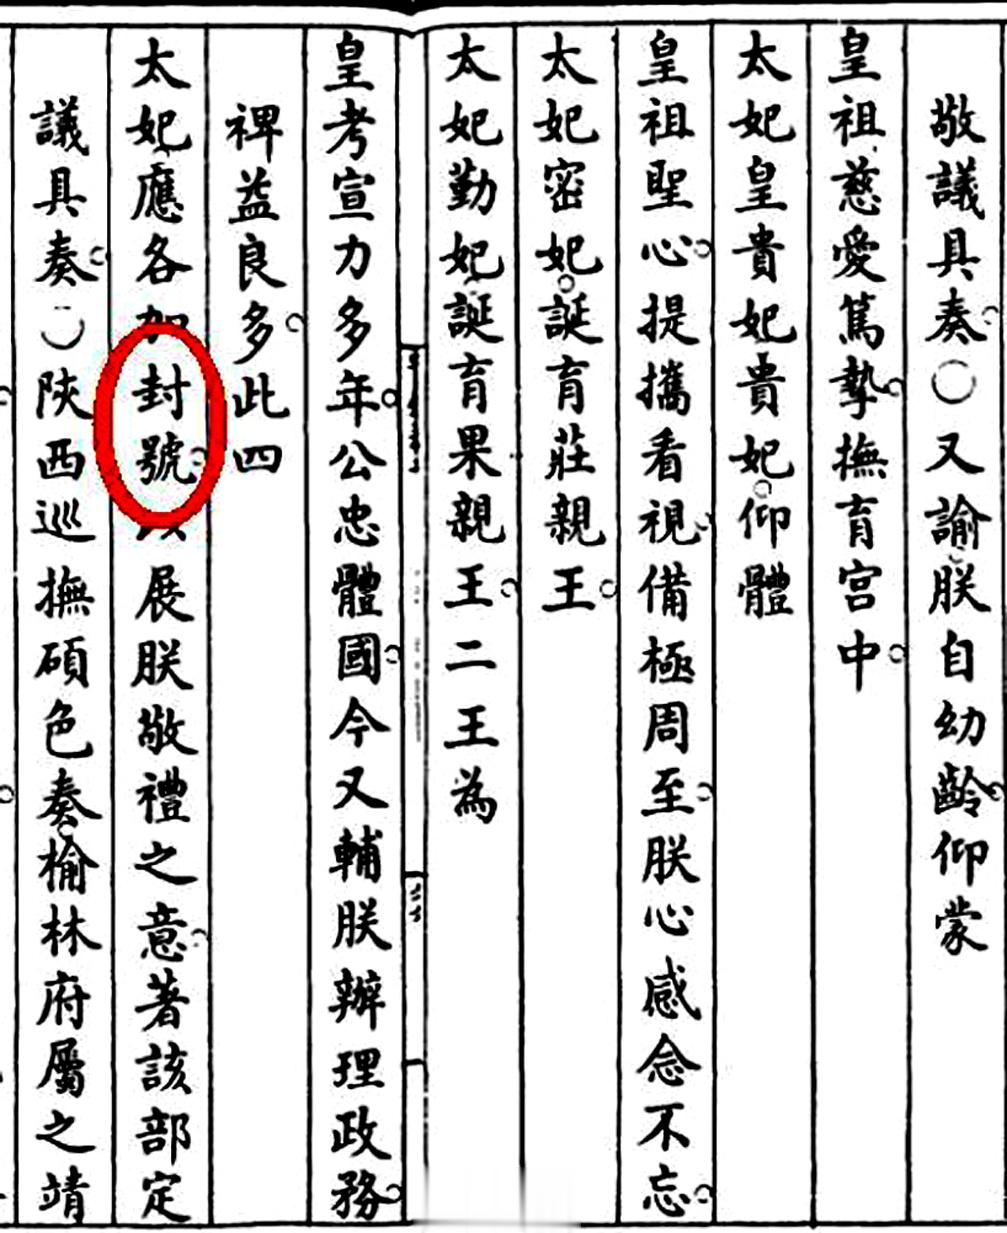 敬議具奏○又諭朕自幼齡仰蒙
皇祖慈愛篤摯撫育宮中
太妃皇貴妃貴妃仰體
皇祖聖心提攜看視備極周至朕心感念不忘
太妃密妃誕育莊親王
太妃勤妃誕育果親王二王為
皇考宣力多年公忠體國今又輔朕辦理政務
裨益良多此四
太妃應各加封號以展朕敬禮之意著該部定
議具奏○陝西巡撫碩色奏榆林府屬之靖